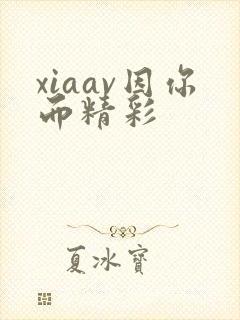 xiaav因你
而精彩
夏冰寶